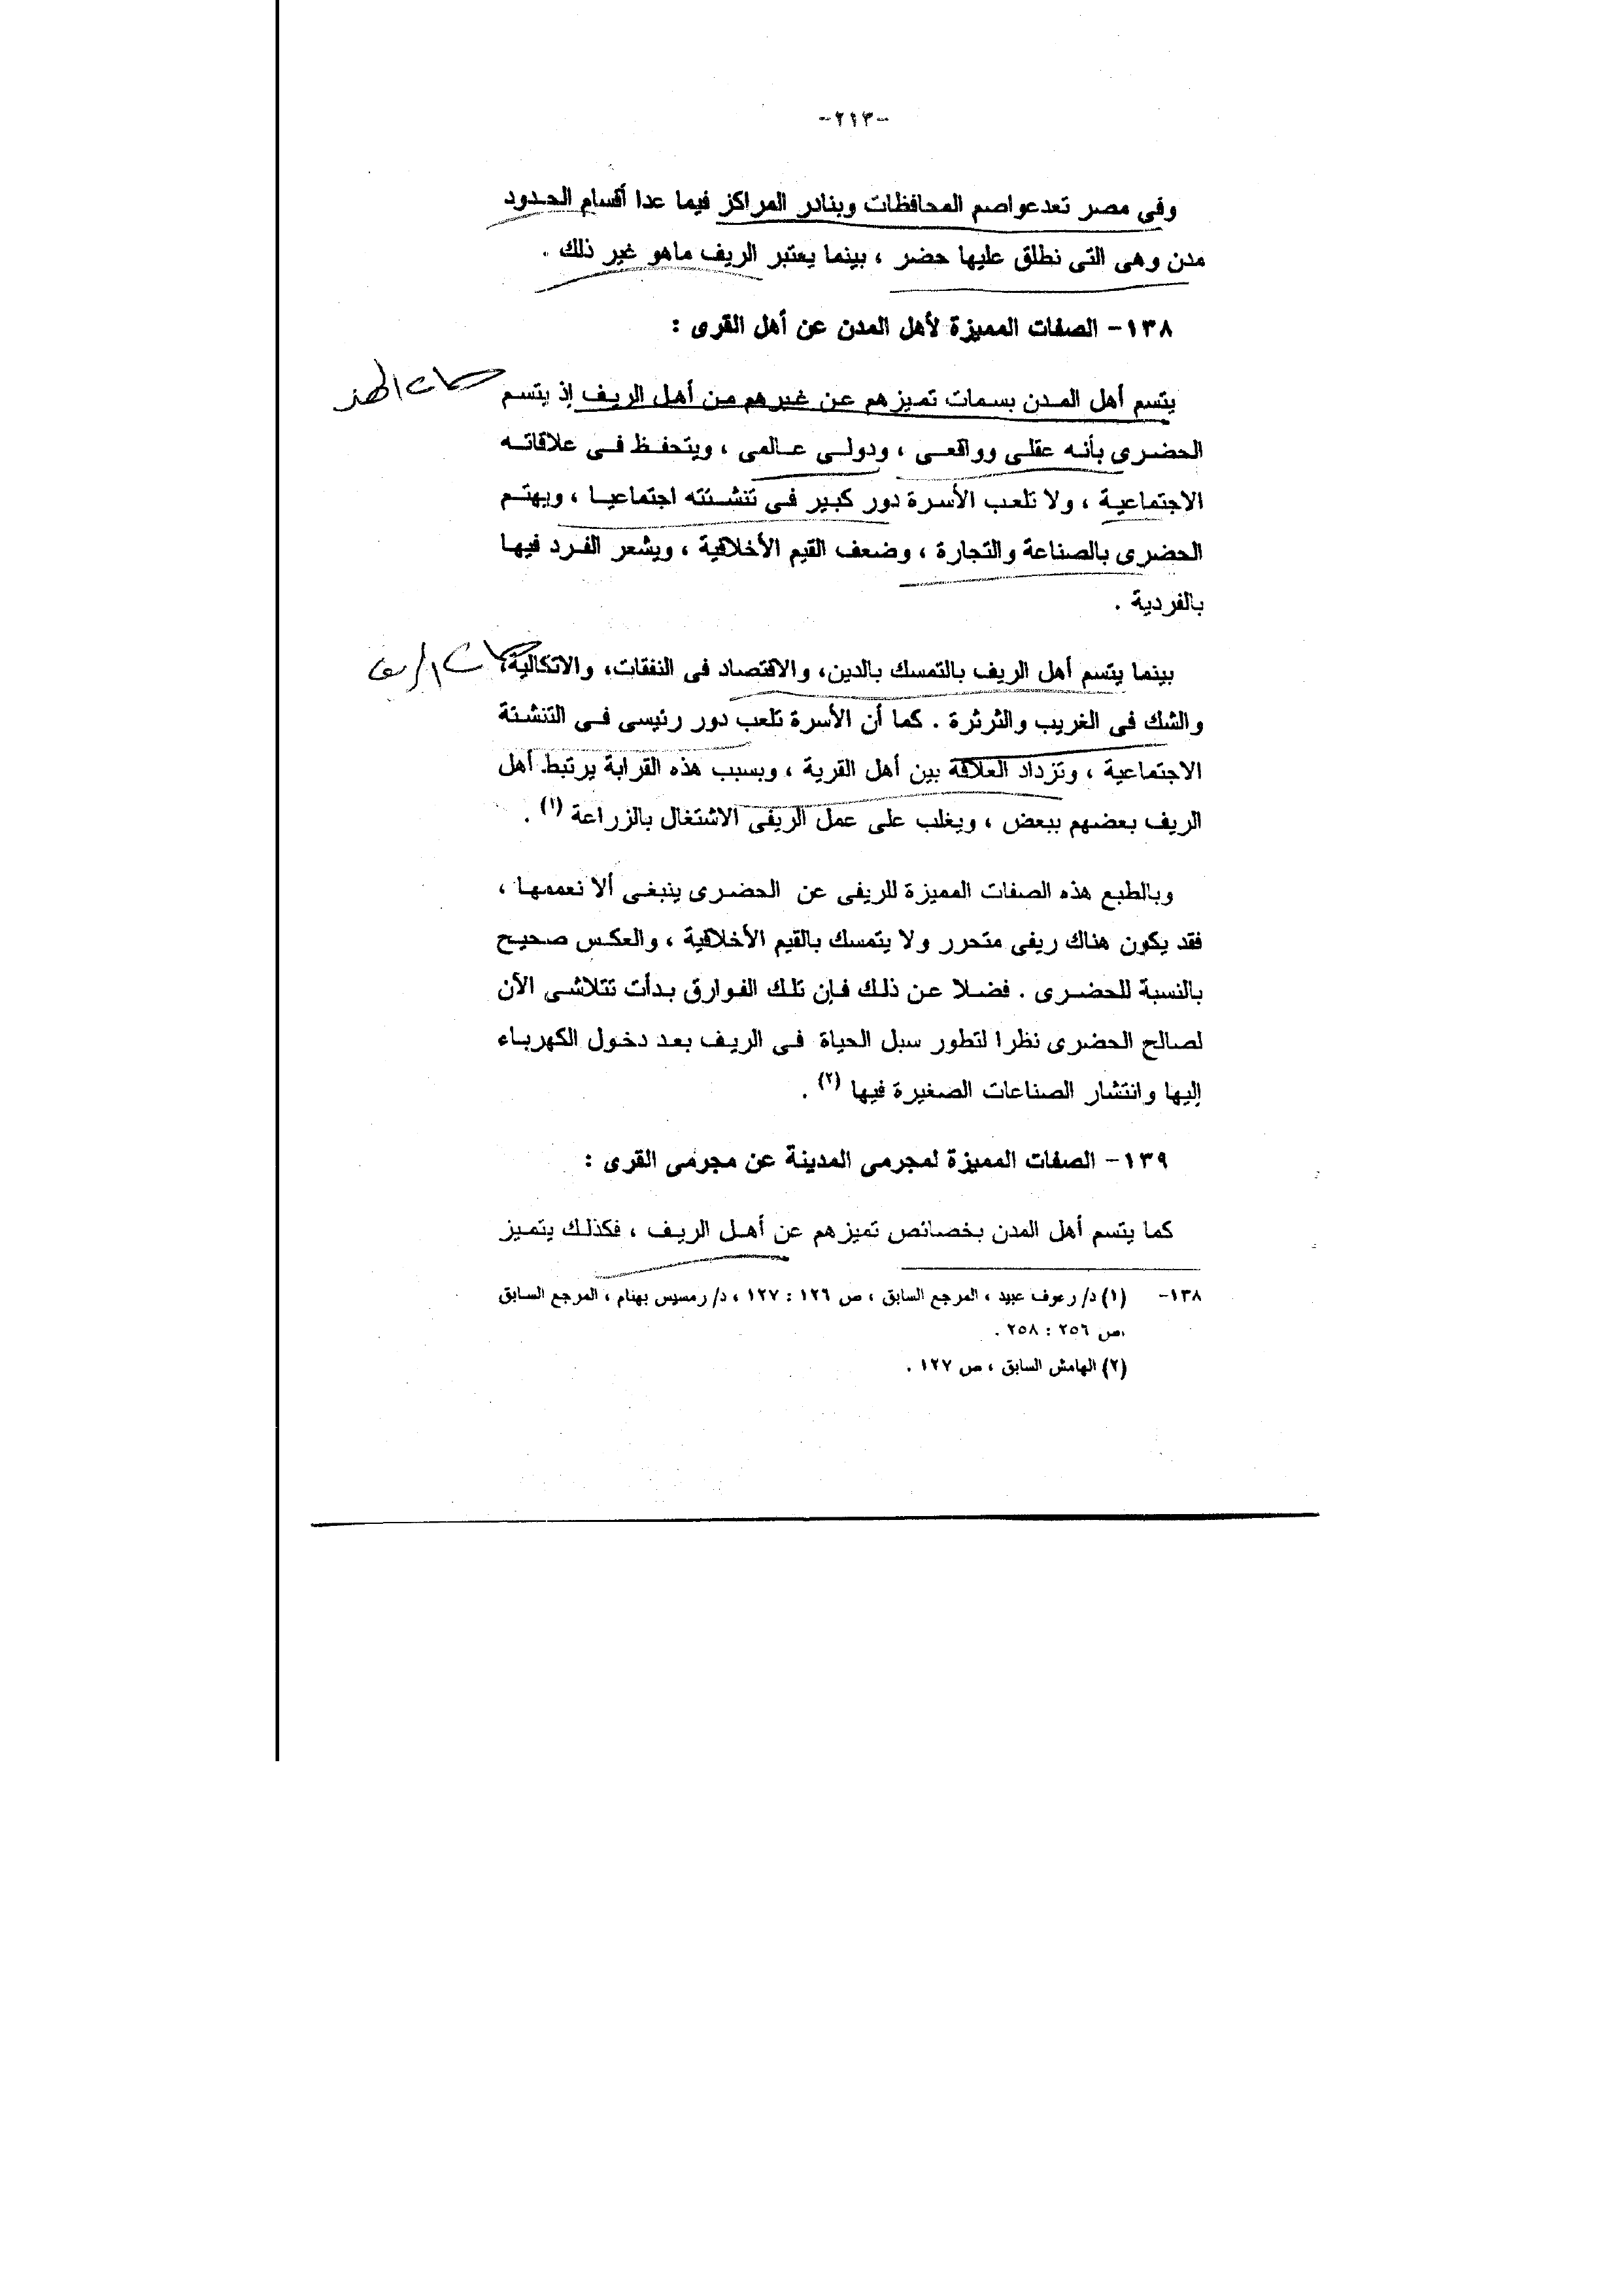 -٢١٣-
وفى مصر تعد عواصم المحافظات وبنادر المراكز فيما عدا أقسام الحدود
مدن وهى التى نطلق عليها حضر ، بينما يعتبر الريف ماهو غير ذلك .
١٣٨- الصفات المميزة لأهل المدن عن أهل القرى :
يتسم أهل المدن بسمات تميزهم عن غيرهم من أهل الريف إذ يتسم
الحضرى بأنه عقلى وواقعى ، ودولى عالمى ، ويتحفظ فى علاقاته
الاجتماعية ، ولا تلعب الأسرة دور كبير فى تنشئته اجتماعيا ، ويهتم
الحضرى بالصناعة والتجارة ، وضعف القيم الأخلاقية ، ويشعر الفرد فيها
بالفردية .
بينما يتسم أهل الريف بالتمسك بالدين، والاقتصاد فى النفقات، والاتكالية،
والشك فى الغريب والثرثرة . كما أن الأسرة تلعب دور رئيسى فى التنشئة
الاجتماعية ، وتزداد العلاقة بين أهل القرية ، وبسبب هذه القرابة يرتبط أهل
الريف بعضهم ببعض ، ويغلب على عمل الريفى الاشتغال بالزراعة (١) .
وبالطبع هذه الصفات المميزة للريفى عن الحضرى ينبغى ألا نعممها ،
فقد يكون هناك ريفى متحرر ولا يتمسك بالقيم الأخلاقية ، والعكس صحيح
بالنسبة للحضرى . فضلا عن ذلك فإن تلك الفوارق بدأت تتلاشى الآن
لصالح الحضرى نظرا لتطور سبل الحياة فى الريف بعد دخول الكهرباء
إليها وانتشار الصناعات الصغيرة فيها (٢) .
١٣٩- الصفات المميزة لمجرمى المدينة عن مجرمى القرى :
كما يتسم أهل المدن بخصائص تميزهم عن أهل الريف ، فكذلك يتميز
١٣٨- (١) د/ رءوف عبيد ، المرجع السابق ، ص ١٢٦ : ١٢٧ ، د/ رمسيس بهنام ، المرجع السابق
،ص ٢٥٦ : ٢٥٨ .
(٢) الهامش السابق ، ص ١٢٧ .